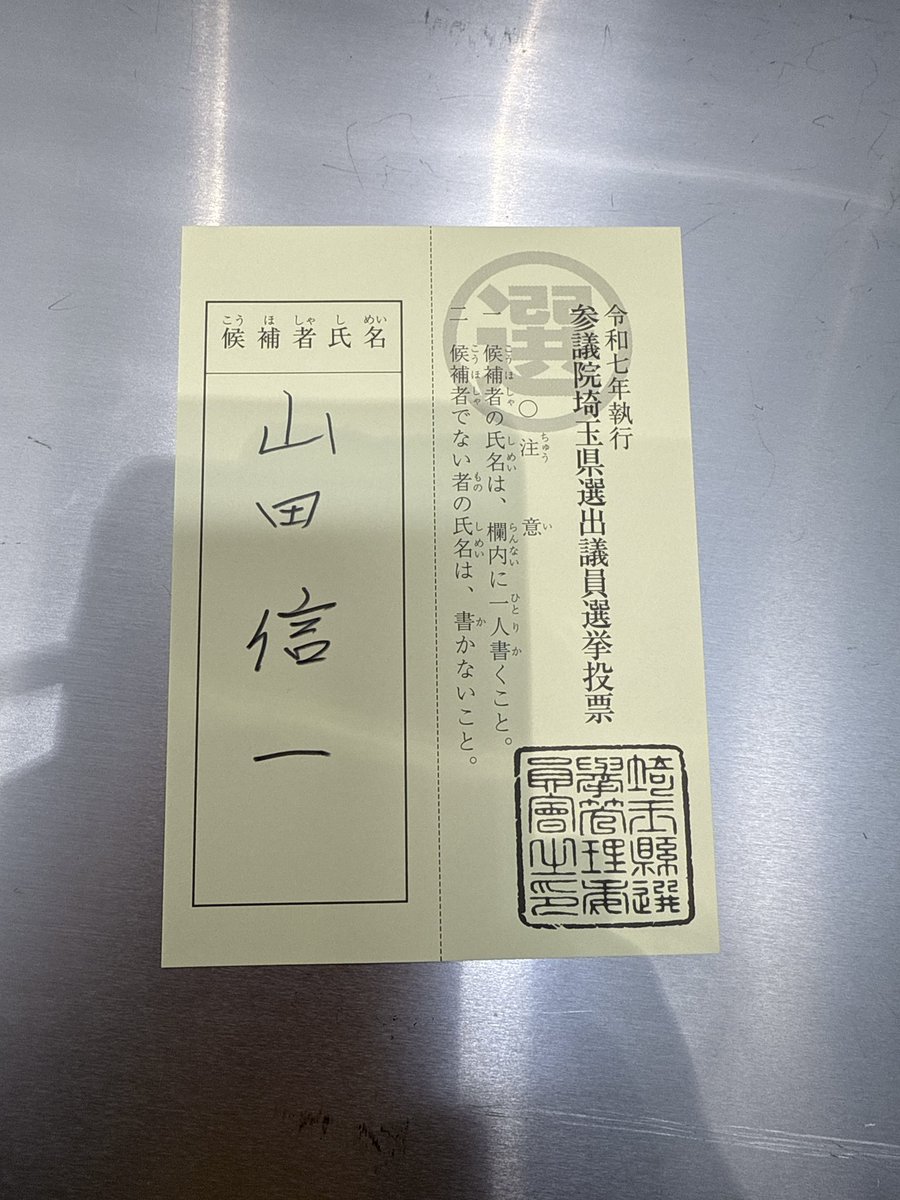 令和七年執行
参議院埼玉県選出議員選挙投票
選
〇注意
一 候補者の氏名は、欄内に一人書くこと。
二 候補者でない者の氏名は、書かないこと。
埼玉縣選
擧管理委
員會之印
候補者氏名
山田信一